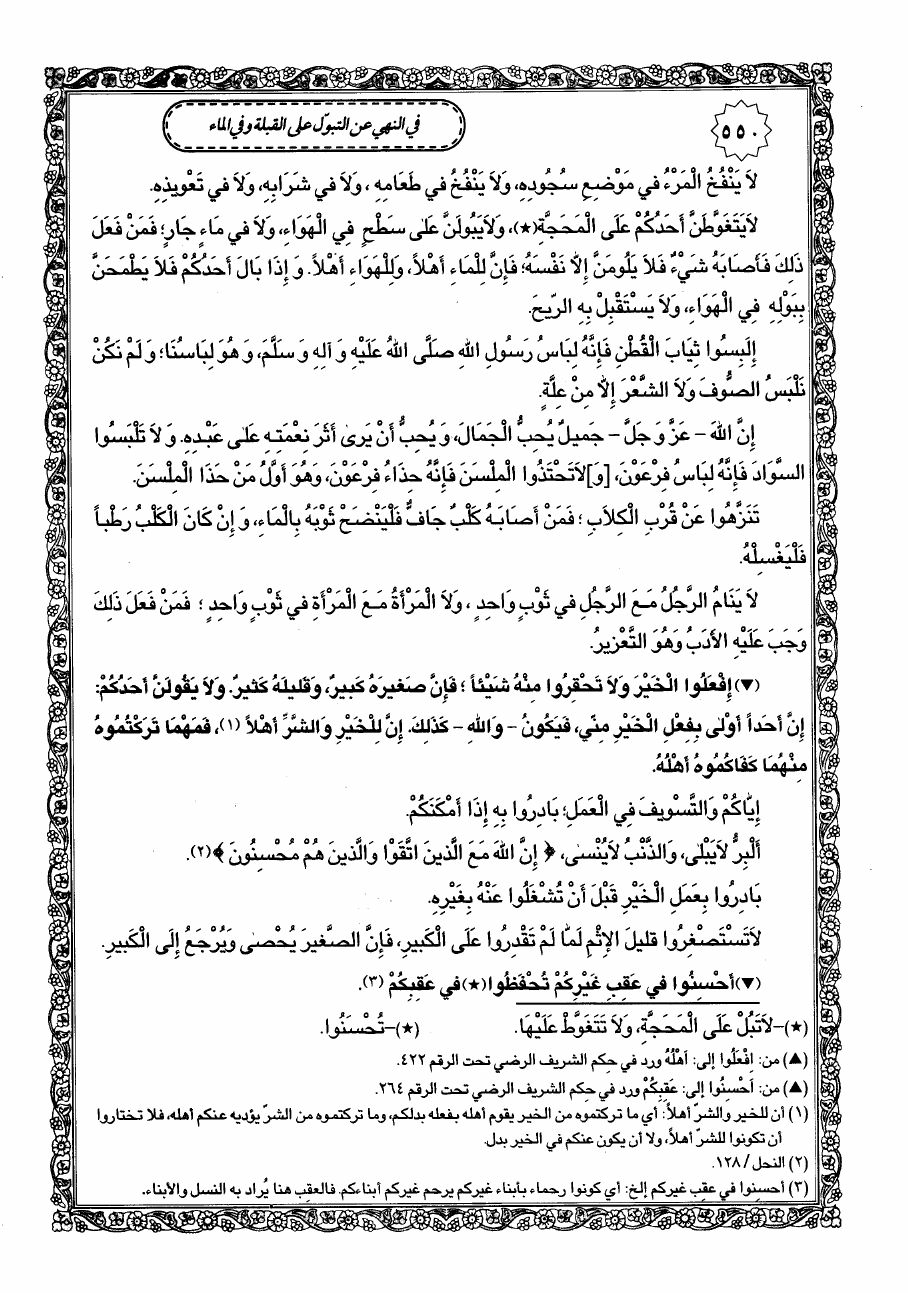 ٥٥٠
في النهي عن التبوّل على القبلة وفي الماء
لاَ يَنْفُخُ الْمَرْءُ في مَوْضِعِ سُجُودِهِ، وَلاَ يَنْفُخُ في طَعَامِهِ، وَلاَ في شَرَابِهِ، وَلاَ في تَعْويذِهِ.
لاَيَتَغَوَّطَنَّ أَحَدُكُمْ عَلَى الْمَحَجَّةِ(★)، وَلاَيَبُولَنَّ عَلى سَطْحٍ فِي الْهَوَاءِ، وَلاَ في مَاءٍ جَارٍ؛ فَمَنْ فَعَلَ
ذلِكَ فَأَصَابَهُ شَيْءٌ فَلاَ يَلُومَنَّ إِلاَّ نَفْسَهُ؛ فَإِنَّ لِلْمَاءِ أَهْلاً، وَلِلْهَوَاءِ أَهْلاً. وَ إِذَا بَالَ أَحَدُكُمْ فَلاَ يَطْمَحَنَّ
بِبَوْلِهِ فِي الْهَوَاءِ، وَلاَ يَسْتَقْبِلْ بِهِ الرّيحَ.
إِلْبِسُوا ثِيَابَ الْقُطْنِ فَإِنَّهُ لِبَاسُ رَسُولِ اللهِ صَلَّى اللهُ عَلَيْهِ وَ آلِهِ وَ سَلَّمَ، وَ هُوَ لِبَاسُنَا؛ وَ لَمْ نَكُنْ
نَلْبَسُ الصُّوفَ وَلاَ الشَّعْرَ إِلاَّ مِنْ عِلَّةٍ.
إِنَّ اللهَ - عَزَّ وَ جَلَّ - جَميلٌ يُحِبُّ الْجَمَالَ، وَ يُحِبُّ أَنْ يَرى أَثَرَ نِعْمَتِهِ عَلى عَبْدِهِ. وَ لاَ تَلْبَسُوا
السَّوَادَ فَإِنَّهُ لِبَاسُ فِرْعَوْنَ، [وَ]لاَتَحْتَذُوا الْمَلْسَنَ فَإِنَّهُ حِذَاءُ فِرْعَوْنَ، وَهُوَ أَوَّلُ مَنْ حَذَا الْمَلْسَنَ.
تَنَزَّهُوا عَنْ قُرْبِ الْكِلاَبِ؛ فَمَنْ أَصَابَهُ كَلْبٌ جَافٌّ فَلْيَنْضَحْ ثَوْبَهُ بِالْمَاءِ، وَ إِنْ كَانَ الْكَلْبُ رَطْباً
فَلْيَغْسِلْهُ.
لاَ يَنَامُ الرَّجُلُ مَعَ الرَّجُلِ في ثَوْبٍ وَاحِدٍ، وَلاَ الْمَرْأَةُ مَعَ الْمَرْأَةِ في ثَوْبٍ وَاحِدٍ؛ فَمَنْ فَعَلَ ذلِكَ
وَجَبَ عَلَيْهِ الأَدَبُ وَهُوَ التَّعْزيرُ.
(▼) إِفْعَلُوا الْخَيْرَ وَلاَ تَحْقِرُوا مِنْهُ شَيْئاً؛ فَإِنَّ صَغيرَهُ كَبيرٌ، وَقَليلَهُ كَثيرٌ. وَلاَ يَقُولَنَّ أَحَدُكُمْ:
إِنَّ أَحَداً أَوْلى بِفِعْلِ الْخَيْرِ مِنّي، فَيَكُونُ - وَاللهِ - كَذَلِكَ. إِنَّ لِلْخَيْرِ وَالشَّرِّ أَهْلاً (١)، فَمَهْمَا تَرَكْتُمُوهُ
مِنْهُمَا كَفَاكُمُوهُ أَهْلُهُ.
إِيَّاكُمْ وَالتَّسْويفَ فِي الْعَمَلِ؛ بَادِرُوا بِهِ إِذَا أَمْكَنَكُمْ.
أَلْبِرُّ لاَيَبْلى، وَالذَّنْبُ لاَيُنْسى، ﴿ إِنَّ اللهَ مَعَ الَّذينَ اتَّقَوْا وَالَّذينَ هُمْ مُحْسِنُونَ ﴾(٢).
بَادِرُوا بِعَمَلِ الْخَيْرِ قَبْلَ أَنْ تُشْغَلُوا عَنْهُ بِغَيْرِهِ.
لاَتَسْتَصْغِرُوا قَليلَ الإِثْمِ لَمَّا لَمْ تَقْدِرُوا عَلَى الْكَبيرِ، فَإِنَّ الصَّغيرَ يُحْصى وَيُرْجَعُ إِلَى الْكَبيرِ.
(▼) أَحْسِنُوا في عَقِبِ غَيْرِكُمْ تُحْفَظُوا(★) في عَقِبِكُمْ (٣).
(★)-لاَتَبُلْ عَلَى الْمَحَجَّةِ، وَلاَ تَتَغَوَّطْ عَلَيْهَا. (★)-تُحْسَنُوا.
(▲) من: افْعَلُوا إلى: أَهْلُهُ ورد في حِكم الشريف الرضي تحت الرقم ٤٢٢.
(▲) من: أَحْسِنُوا إلى: عَقِبِكُمْ ورد في حِكم الشريف الرضي تحت الرقم ٢٦٤.
(١) أن للخير والشر أهلاً: أي ما تركتموه من الخير يقوم أهله بفعله بدلكم، وما تركتموه من الشرّ يؤديه عنكم أهله، فلا تختاروا
أن تكونوا للشرّ أهلاً، ولا أن يكون عنكم في الخير بدل.
(٢) النحل / ١٢٨.
(٣) أحسِنوا في عقِب غيركم إلخ: أي كونوا رحماء بأبناء غيركم يرحم غيركم أبناءكم. فالعقِب هنا يُراد به النسل والأبناء.